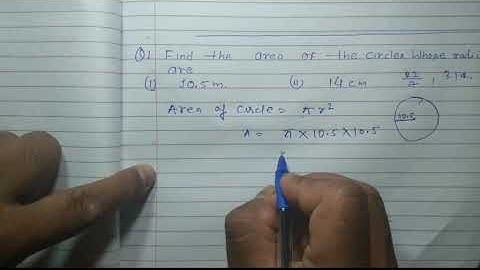 Q1 Find the area of the circles whose radii
are
(i) 10.5 m. (ii) 14 cm 22/7, 3.14.
Area of circle = πr²
10.5
A = π × 10.5 × 10.5